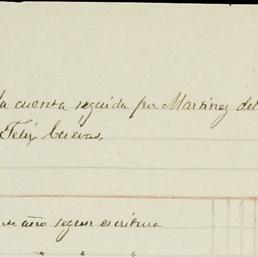 la cuenta seguida por Martinez del
Felix Cuevas.
año segun escritura